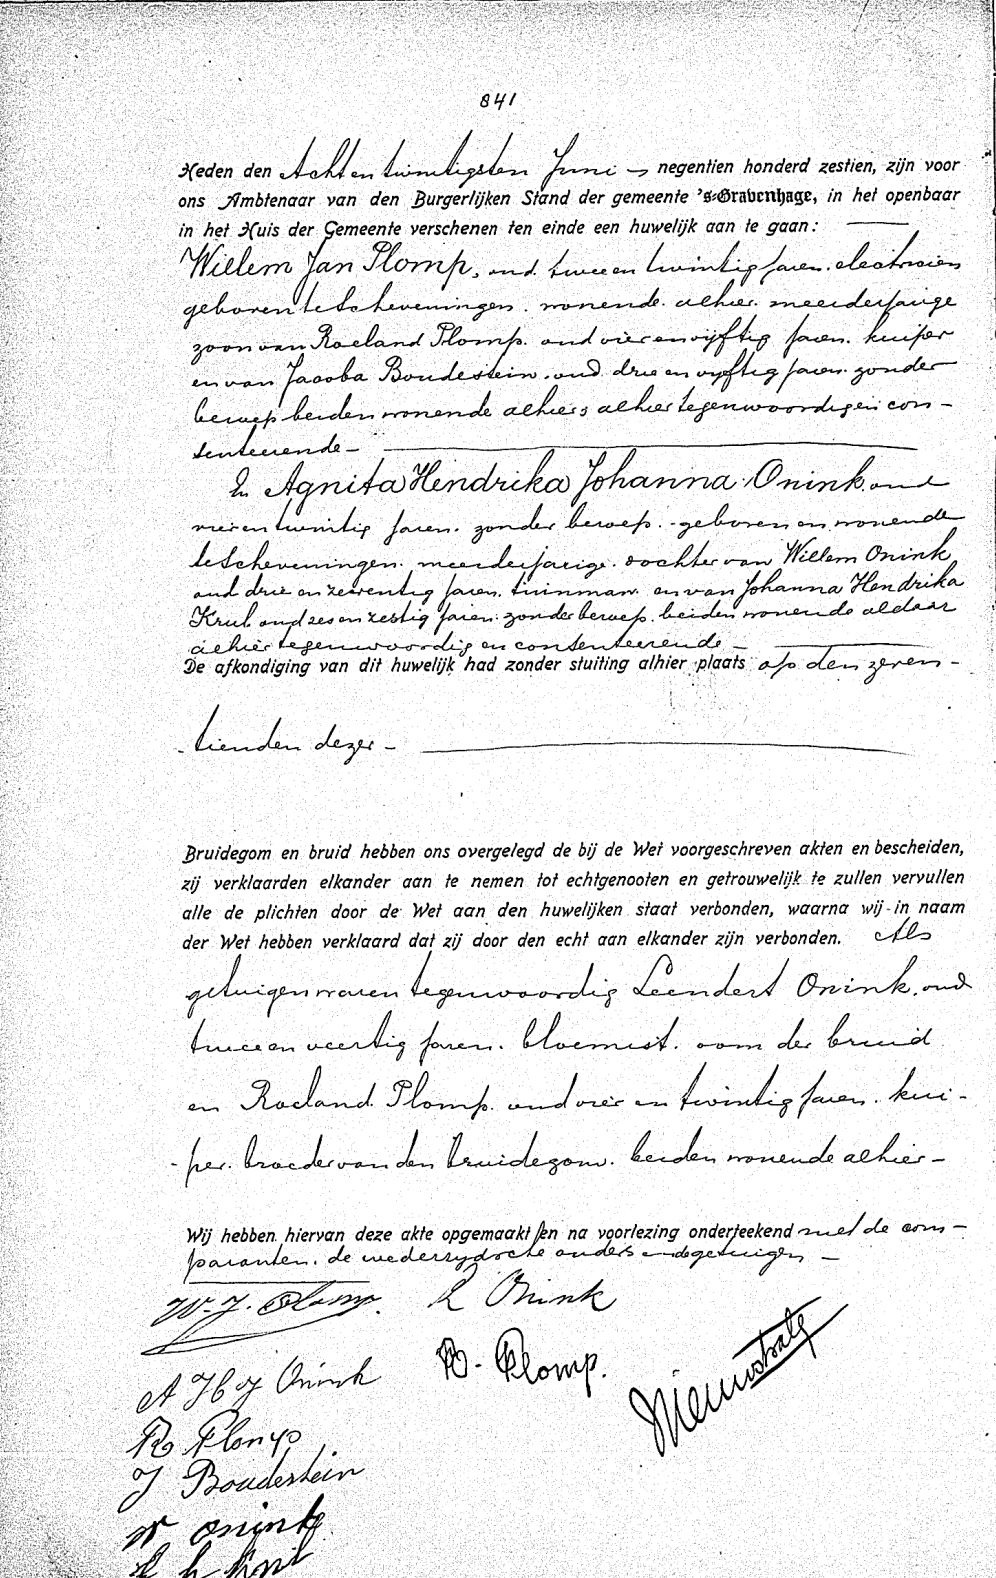 841
Heden den Acht en twintigsten Juni negentien honderd zestien, zijn voor
ons Ambtenaar van den Burgerlijken Stand der gemeente 's-Gravenhage, in het openbaar
in het Huis der Gemeente verschenen ten einde een huwelijk aan te gaan:
Willem Jan Plomp, oud twee en twintig jaren. electricien
geboren te Scheveningen. wonende alhier. meerderjarige
zoon van Roeland Plomp. oud vier en vijftig jaren. kuiper
en van Jacoba Boudestein. oud drie en vijftig jaren. zonder
beroep beiden wonende alhier alhier tegenwoordig en con-
senteerende -
En Agnita Hendrika Johanna Onink oud
vier en twintig jaren. zonder beroep. geboren en wonende
te Scheveningen. meerderjarige dochter van Willem Onink
oud drie en zeventig jaren. tuinman en van Johanna Hendrika
Krul oud zes en zestig jaren. zonder beroep. beiden wonende aldaar
alhier tegenwoordig en consenteerende -
De afkondiging van dit huwelijk had zonder stuiting alhier plaats op den zeven-
- tienden dezer -
Bruidegom en bruid hebben ons overgelegd de bij de Wet voorgeschreven akten en bescheiden,
zij verklaarden elkander aan te nemen tot echtgenooten en getrouwelijk te zullen vervullen
alle de plichten door de Wet aan den huwelijken staat verbonden, waarna wij in naam
der Wet hebben verklaard dat zij door den echt aan elkander zijn verbonden. Als
getuigen waren tegenwoordig Leendert Onink. oud
twee en veertig jaren. bloemist. oom der bruid
en Roeland Plomp. oud vier en twintig jaren. kui-
- per. broeder van den bruidegom. beiden wonende alhier -
Wij hebben hiervan deze akte opgemaakt en na voorlezing onderteekend met de com-
paranten. de wederzijdsche ouders en de getuigen -
W. J. Plomp. L Onink
A H J Onink R. Plomp.
R Plomp
J Boudestein
W Onink